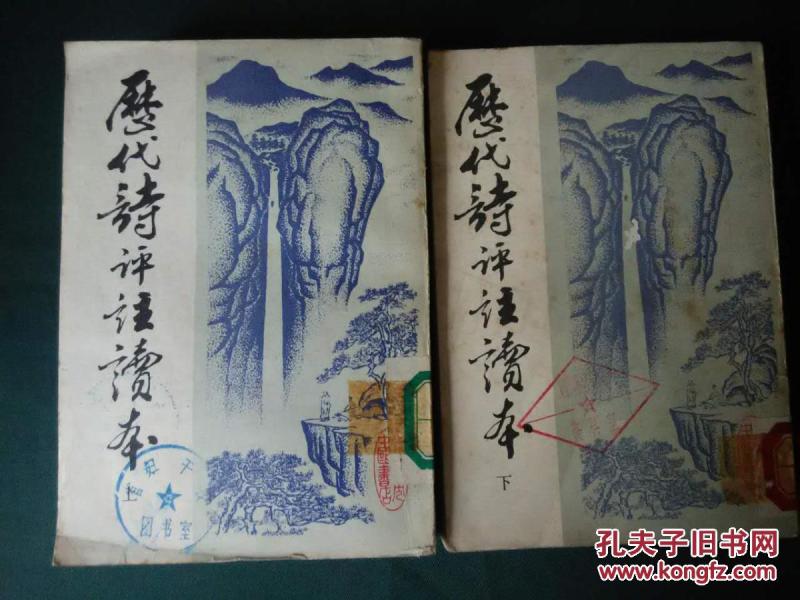 歷代詩评註讀本
图书室
中國書店
歷代詩评註讀本
下
孔夫子旧书网
www.kongfz.com